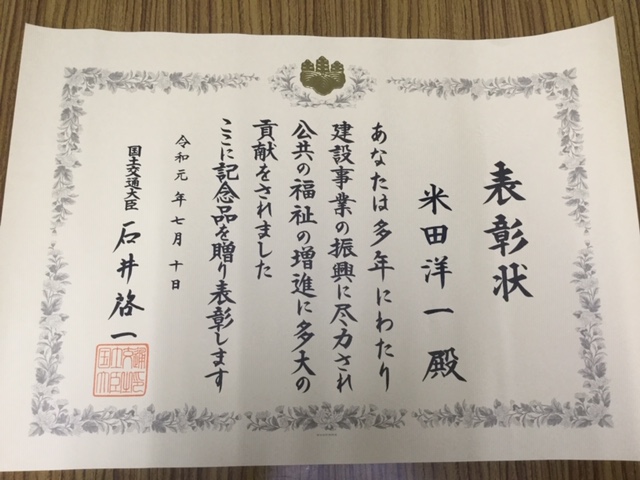 表彰状
米田洋一殿
あなたは多年にわたり
建設事業の振興に尽力され
公共の福祉の増進に多大の
貢献をされました
ここに記念品を贈り表彰します
令和元年七月十日
国土交通大臣 石井啓一